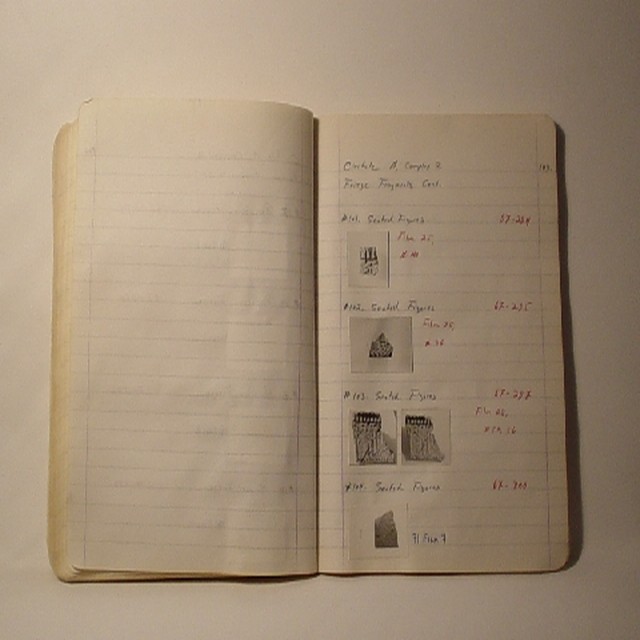 Citadel A, Complex B 103.
Frieze Fragments Cont.
#101. Seated Figures 67-284
Film 25,
#102. Seated Figures 67-295
Film 25,
# 36
#103. Seated Figures 67-297
Film 22,
#104. Seated Figures 67-300
71 Film 7